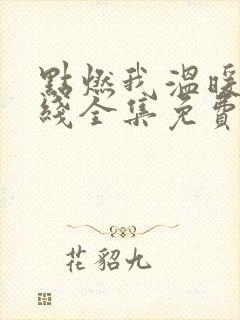 點燃我,溫暖
綫全集免費
花貂九